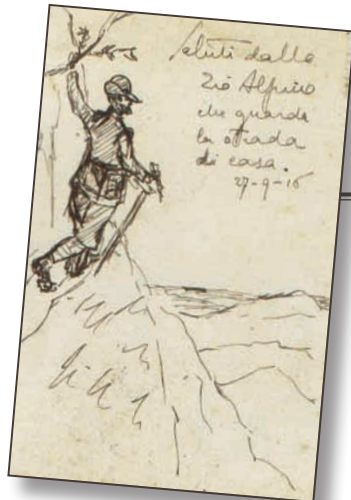 Saluti dallo
Zio Alpino
che guarda
la strada
di casa.
27-9-16